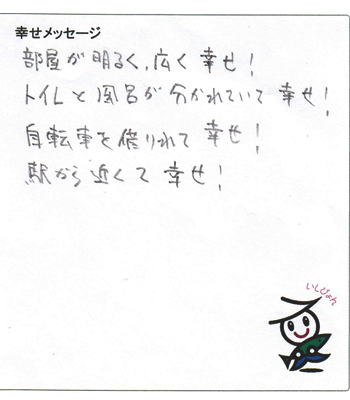 幸せメッセージ
部屋が明るく、広く幸せ!
トイレと風呂が分かれていて幸せ!
自転車を借りれて幸せ!
駅から近くて幸せ!
いしぴょん